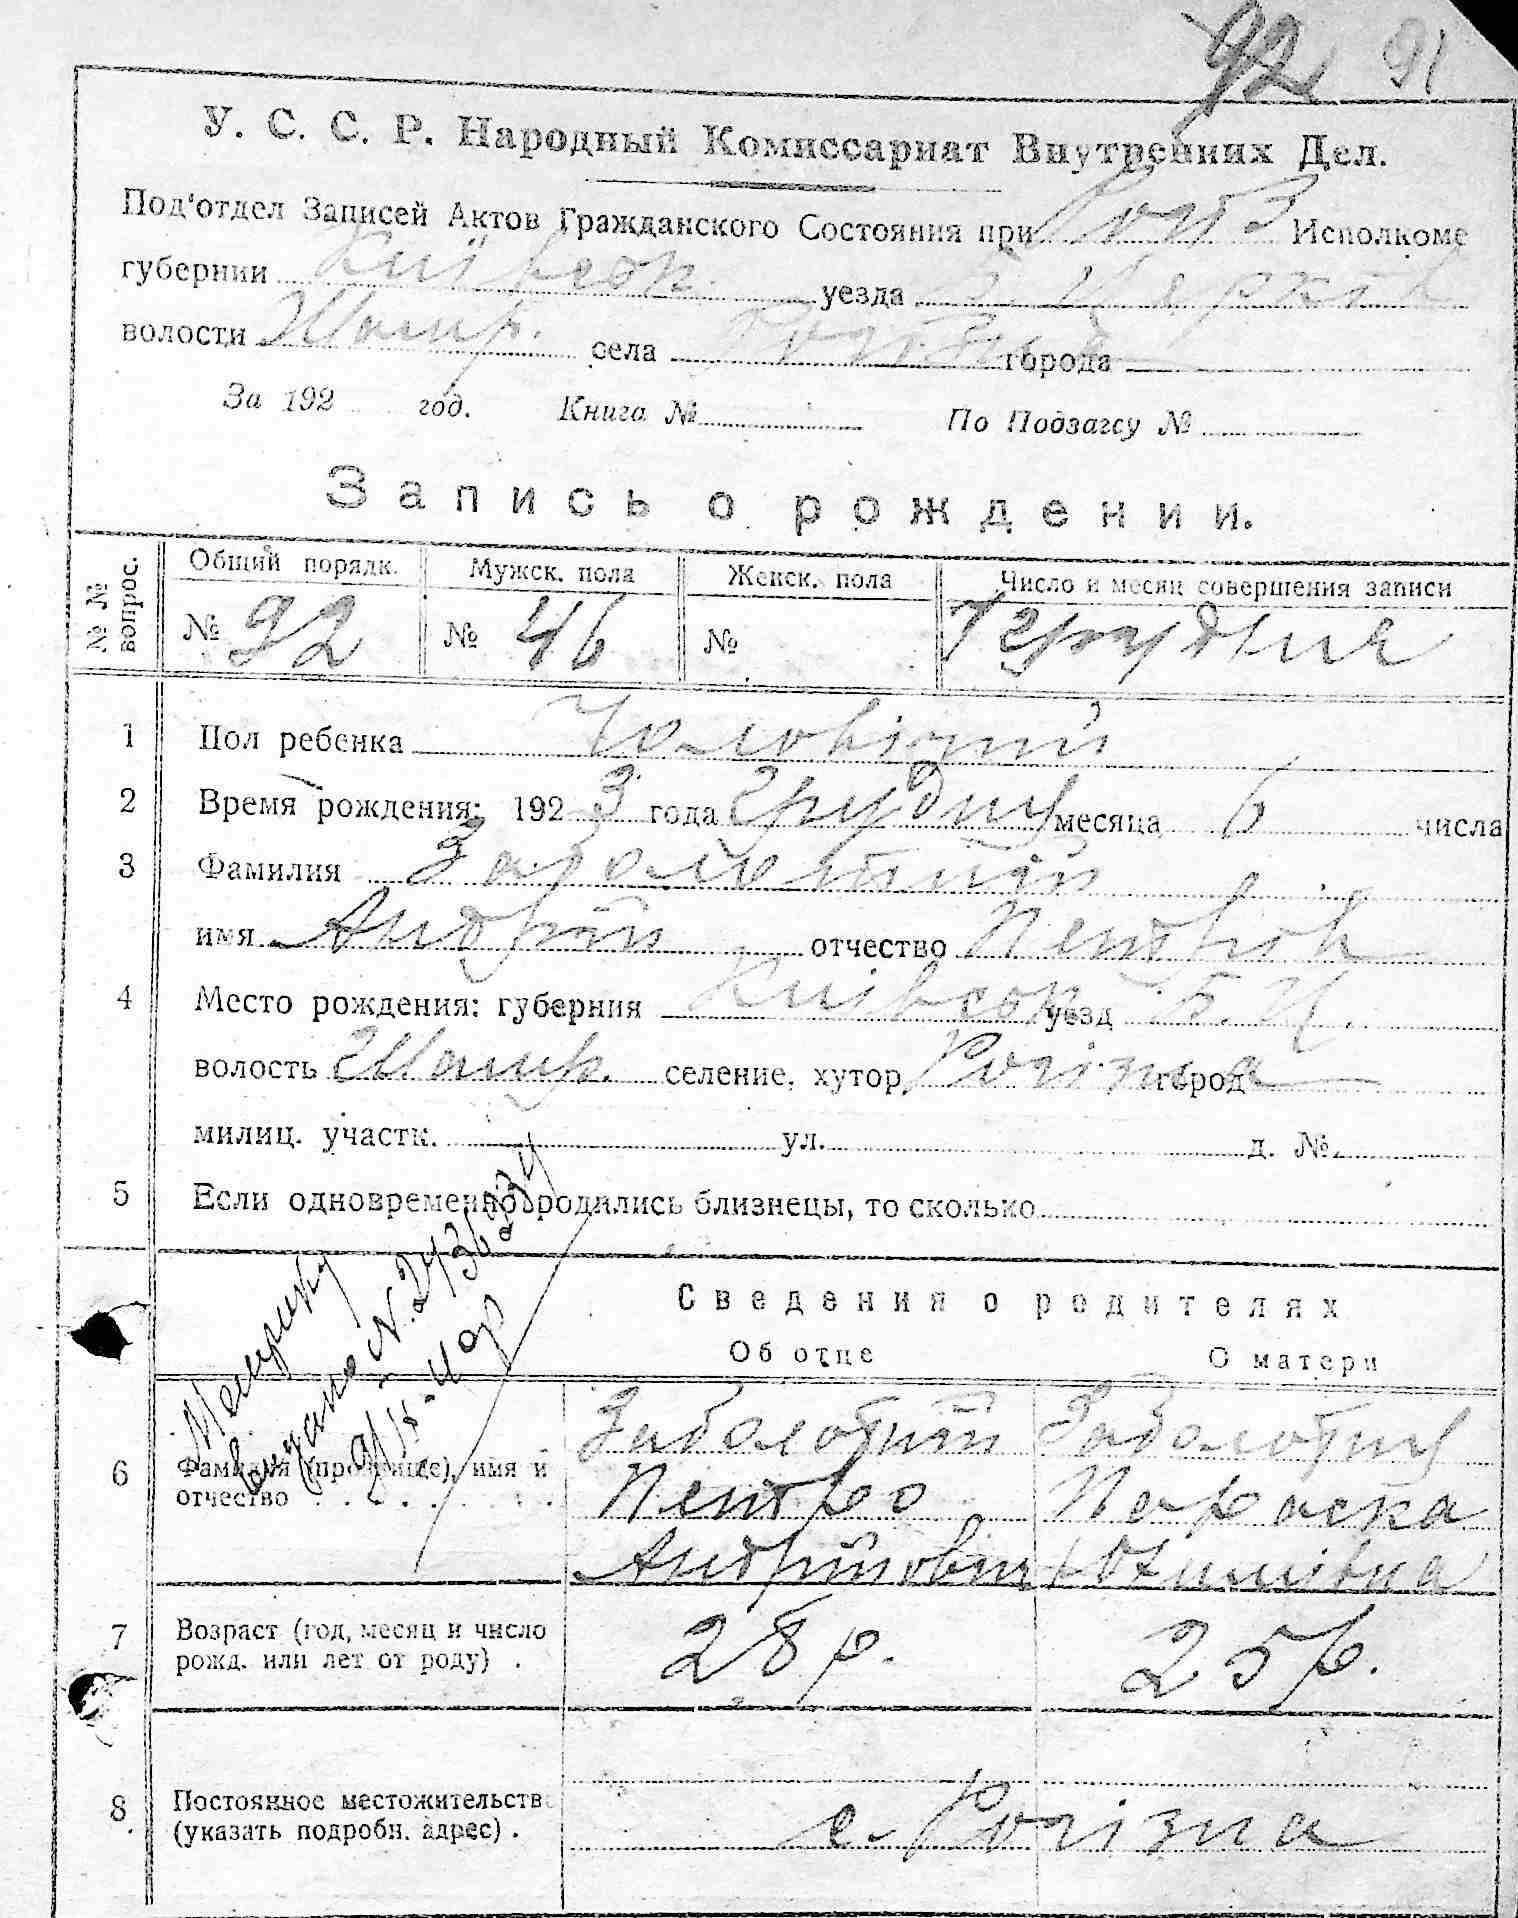 92 91
У. С. С. Р. Народный Комиссариат Внутренних Дел.
Под'отдел Записей Актов Гражданского Состояния при Исполкоме
губернии Київськ. уезда Б. Церків
волости села города
За 192 год. Книга № По Подзагсу №
Запись о рождении.
№ № вопрос. Общий порядк. Мужск. пола Женск. пола Число и месяц совершения записи
№ 92 № 46 № 7 грудня
1 Пол ребенка Чоловічий
2 Время рождения: 1923 года грудня месяца 6 числа
3 Фамилия Заболотній
имя Андрій отчество Петров
4 Место рождения: губерния Київськ уезд Б. Ц.
волость селение, хутор Рогізна город
милиц. участк. ул. д. №
5 Если одновременно родились близнецы, то сколько
Сведения о родителях
Об отце О матери
Метрику
видано №
6 Фамилия (прозвище), имя и отчество
Заболотній Заболотня
Петро Параска
Андрійович
7 Возраст (год, месяц и число рожд. или лет от роду) . 28 р. 25 р.
8 Постоянное местожительств
(указать подробн. адрес) . с. Рогізна